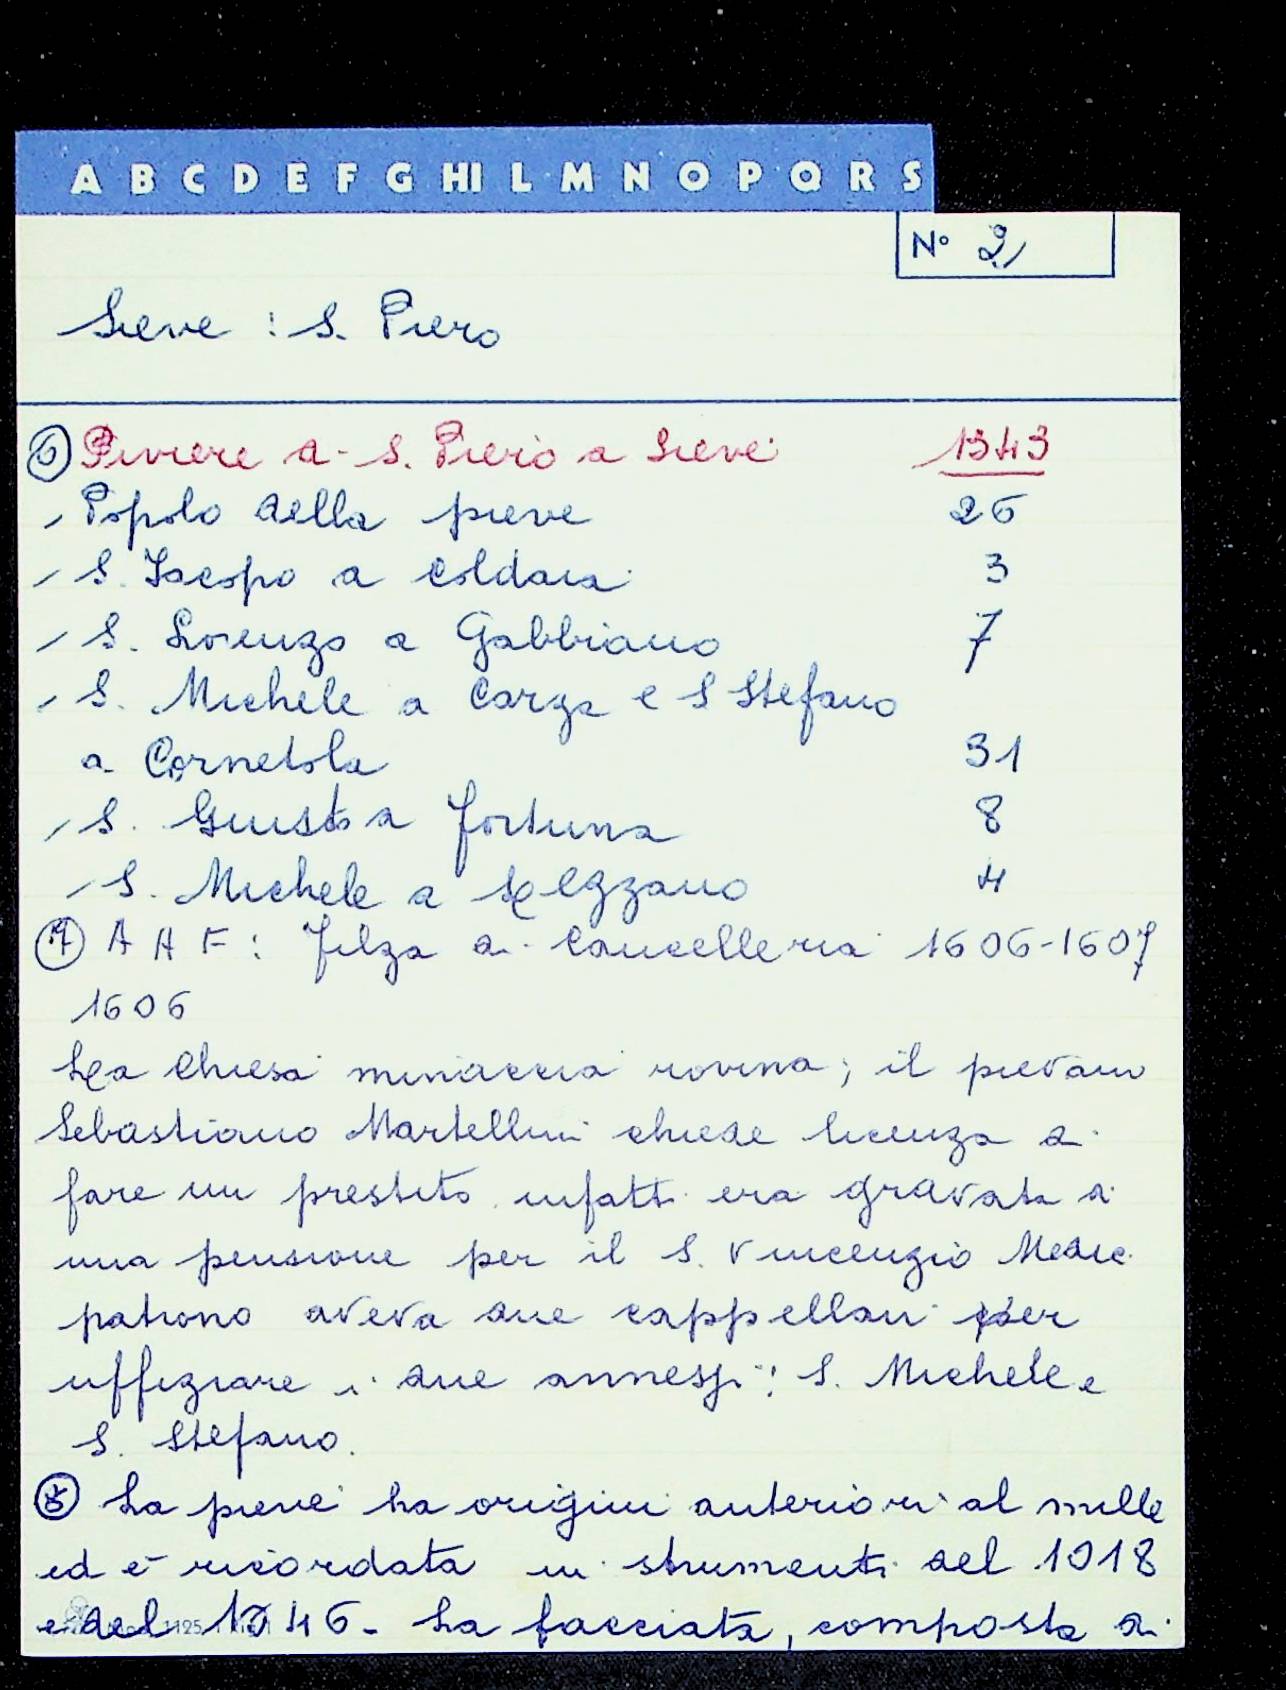 A B C D E F G HI L M N O P Q R S
N° 2
Sieve : S. Piero
⑥ Piviere di S. Piero a Sieve 1343
Popolo della pieve 26
S. Jacopo a Coldaia 3
S. Lorenzo a Gabbiano 7
S. Michele a Carza e S Stefano
a Cornetola 31
S. Giusto a Fortuna 8
S. Michele a Lezzano 4
⑦ A A F : Filza di Cancelleria 1606-1607
1606
La Chiesa minaccia rovina; il pievano
Sebastiano Martellini chiede licenza di
fare un prestito infatti era gravata di
una pensione per il S. Vincenzio Medici
patrono aveva due cappellani per
uffiziare i due annessi: S. Michele e
S. Stefano.
⑧ La pieve ha origini anteriori al mille
ed è ricordata in strumenti del 1018
e del 1046 - La facciata, composta di